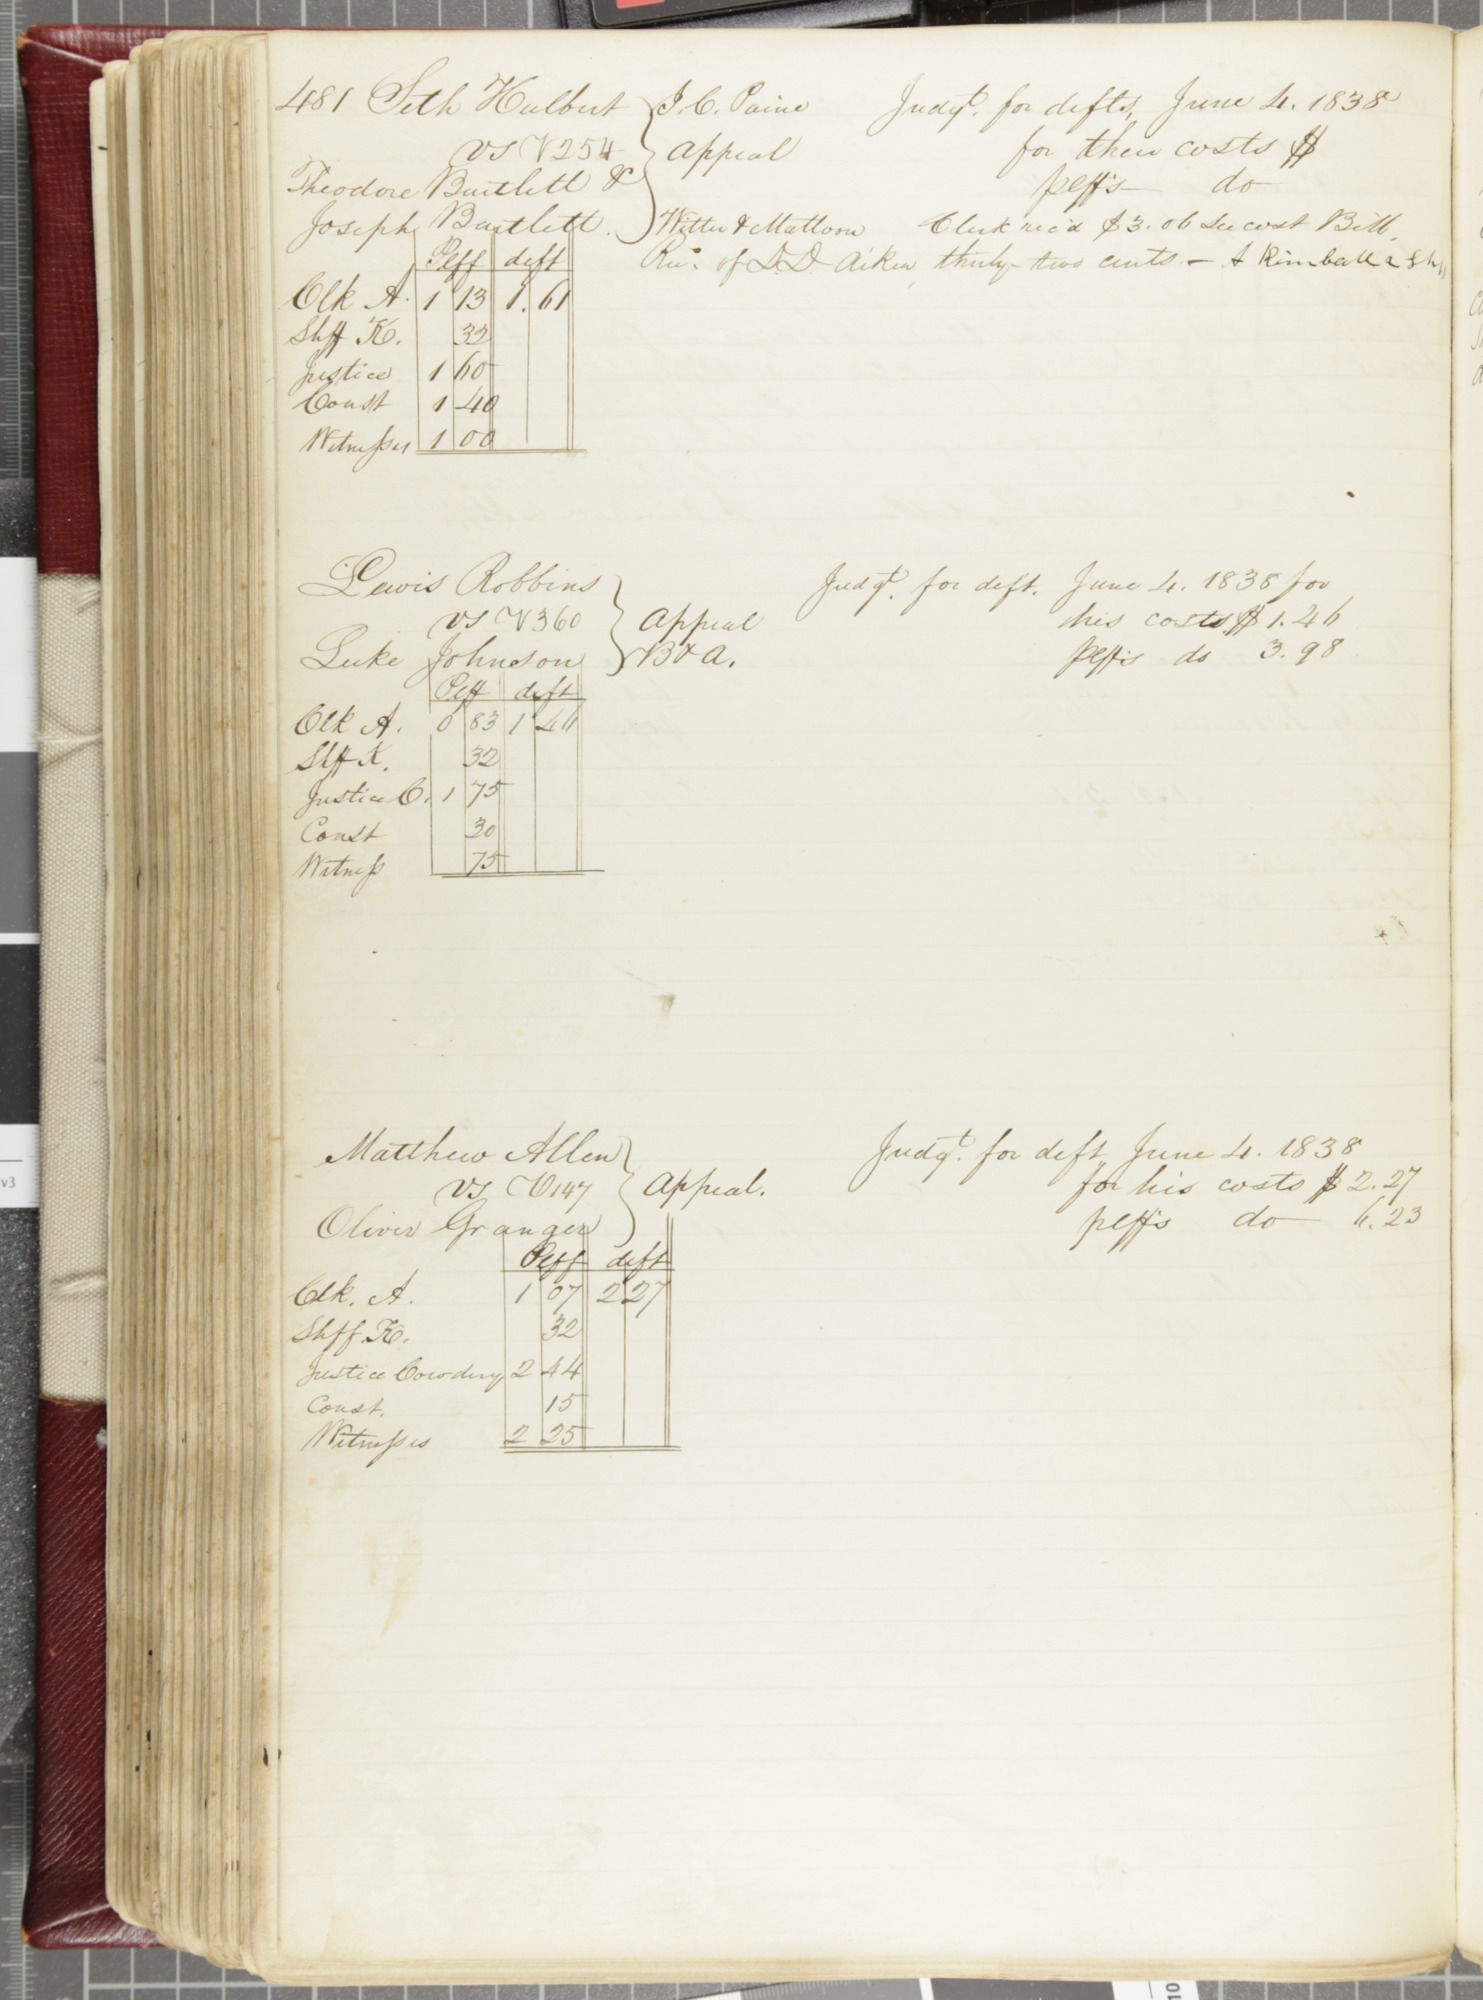 481 Seth Hulbert } J. C. Paine Judgt. for defts, June 4. 1838
vs V254 Appeal for their costs $
Theodore Bartlett & plffs do
Joseph Bartlett. Witter & Mattoon Clerk rec'd $3.06 See cost Bill,
Rec. of D. D. Aiken, thirty-two cents. - A Kimball
Plff deft
Clk A. 1 13 1.61
Shff K. 32
Justice 1 60
Const 1 40
Witnesses 1 00
Lewis Robbins } Judgt. for deft. June 4. 1838 for
vs V360 Appeal his costs $1.46
Luke Johnson B & A. plffs do 3.98
Plff deft
Clk A. 0 83 1 46
Shff K. 32
Justice C. 1 75
Const 30
Witness 75
Matthew Allen } Judgt. for deft June 4. 1838
vs V147 Appeal. for his costs $2.27
Oliver Granger plffs do 6.23
Plff deft
Clk. A. 1 07 2 27
Shff. K. 32
Justice Cowdery 2 44
Const. 15
Witnesses 2 25
v3
10